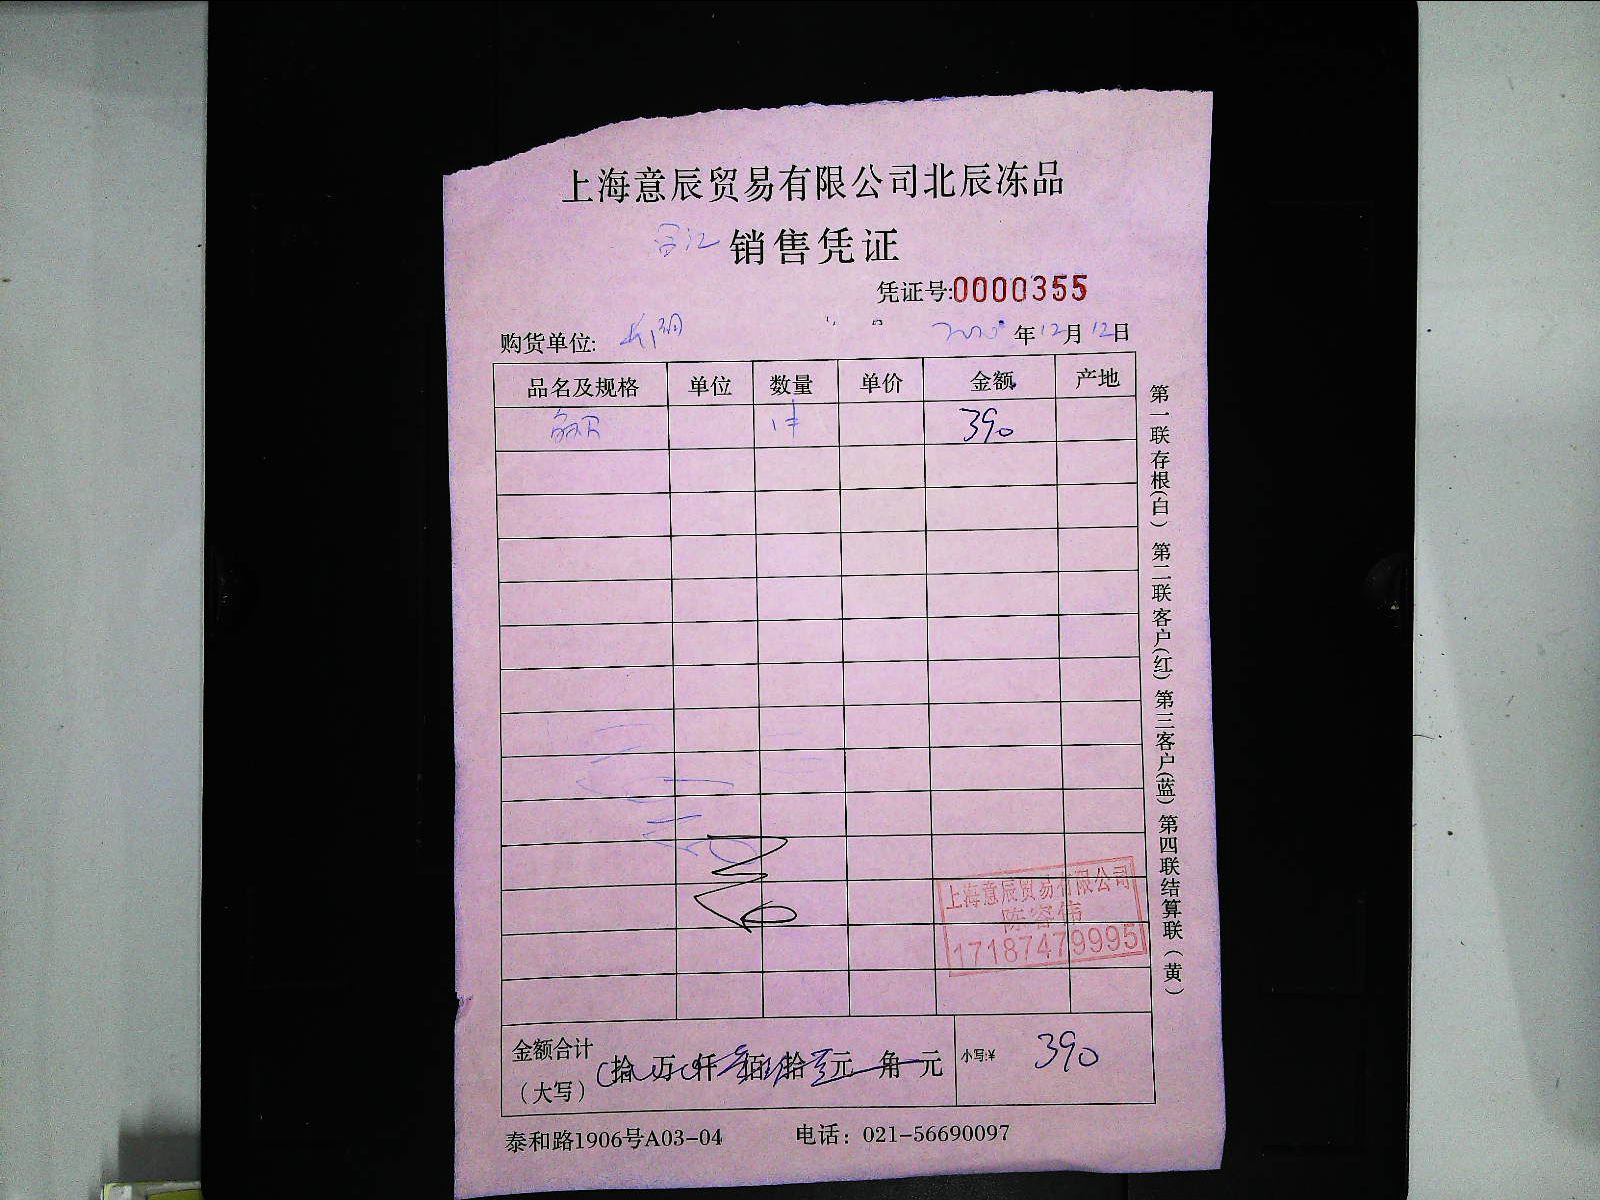 上海意辰贸易有限公司北辰冻品
销售凭证
凭证号:0000355
购货单位:
年12月12日
品名及规格 单位 数量 单价 金额 产地
1件 390
上海意辰贸易有限公司
陈容伟
17187479995
金额合计
(大写) 拾 万 仟 佰 拾 元 角 元 小写:¥ 390
泰和路1906号A03-04 电话：021-56690097
第一联存根(白) 第二联客户(红) 第三客户(蓝) 第四联结算联(黄)